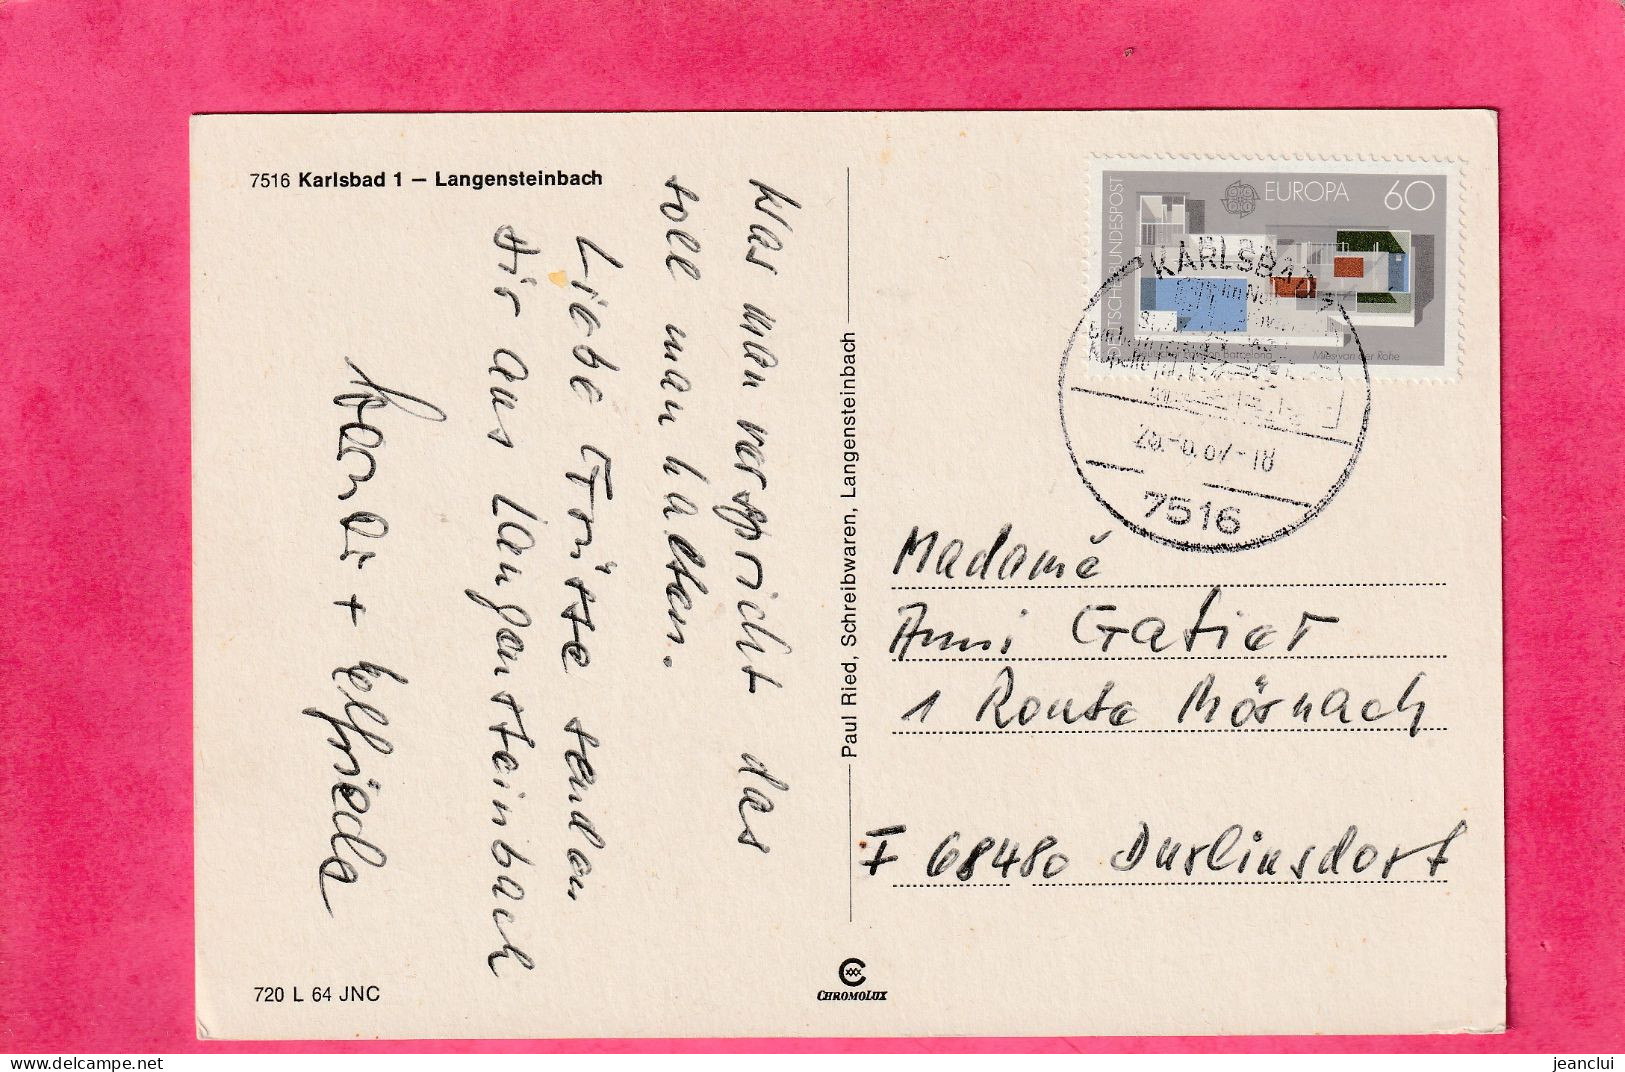 7516 Karlsbad 1 – Langensteinbach
Was man verspricht das
soll man halten.
Liebe Grüsse senden
dir aus Langensteinbach
+ Elfrieda
720 L 64 JNC
Paul Ried, Schreibwaren, Langensteinbach
CHROMOLUX
DEUTSCHE BUNDESPOST
EUROPA 60
Barcelona Mies van der Rohe
KARLSBAD
7516
Madame
Anni Gatier
1 Route Mörnach
F 68480 Durlinsdorf
jeanclui